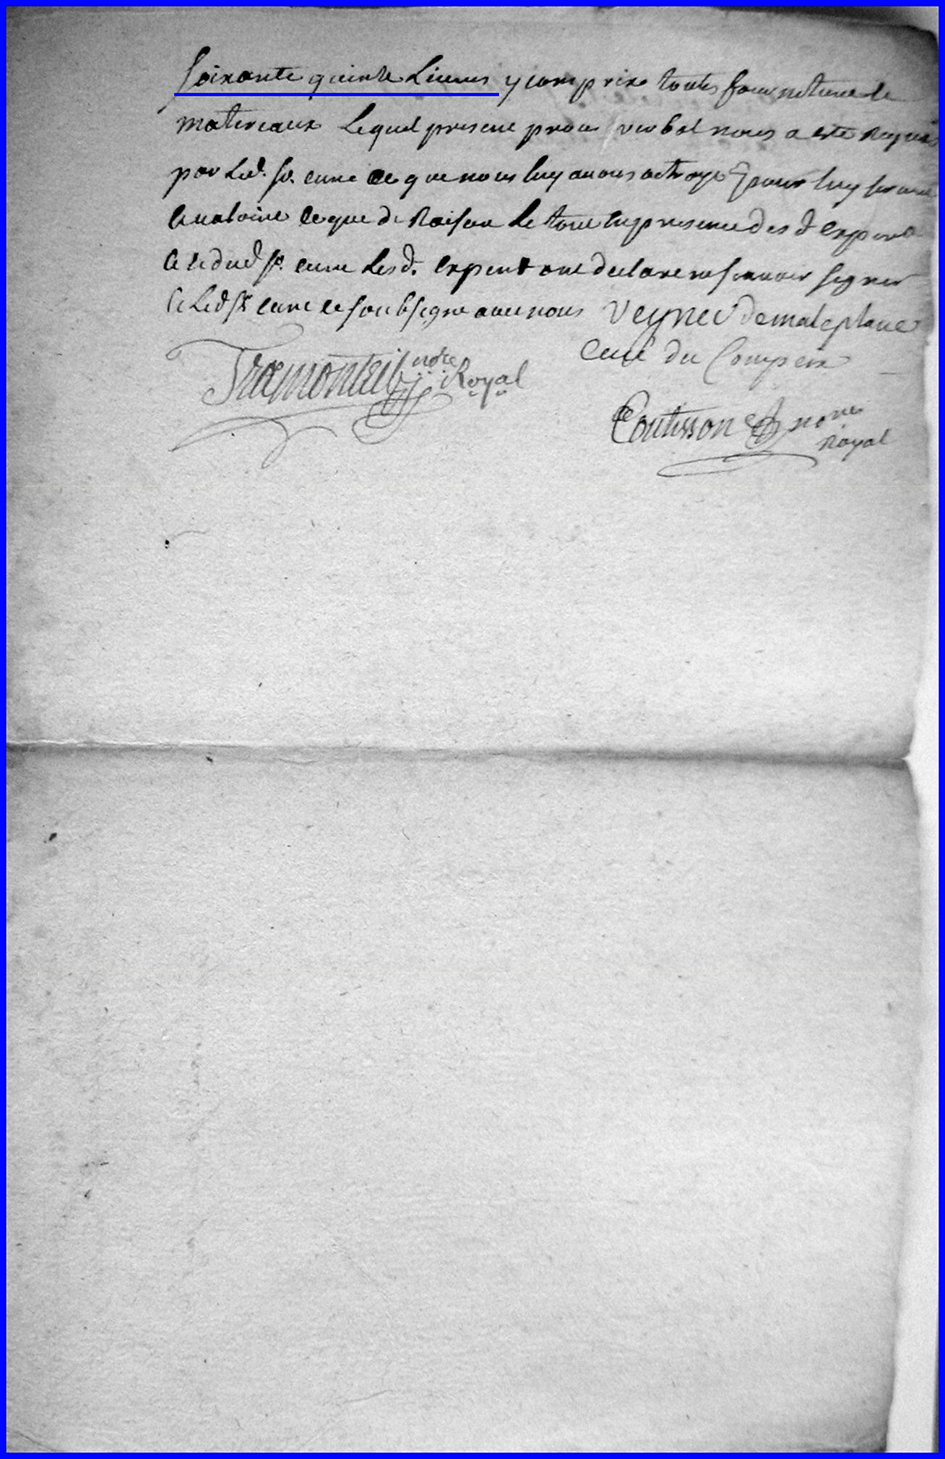 soixante quinze Livres y compris toutes fourniture de
materiaux Lequel present proces verbal nous a esté requis
par Led. sr. curé ce que nous luy avons octroyé pour luy servir
et valoir ce que de Raison Le tout en presence des d. experts
et dud. sr. curé Lesd. experts ont declaré ne scavoir signer
et Led sr curé ce soubsigne avec nous Veynei de maleplane
Curé du Compeix
Tramonteil notre Royal
Coutisson nore
Royal